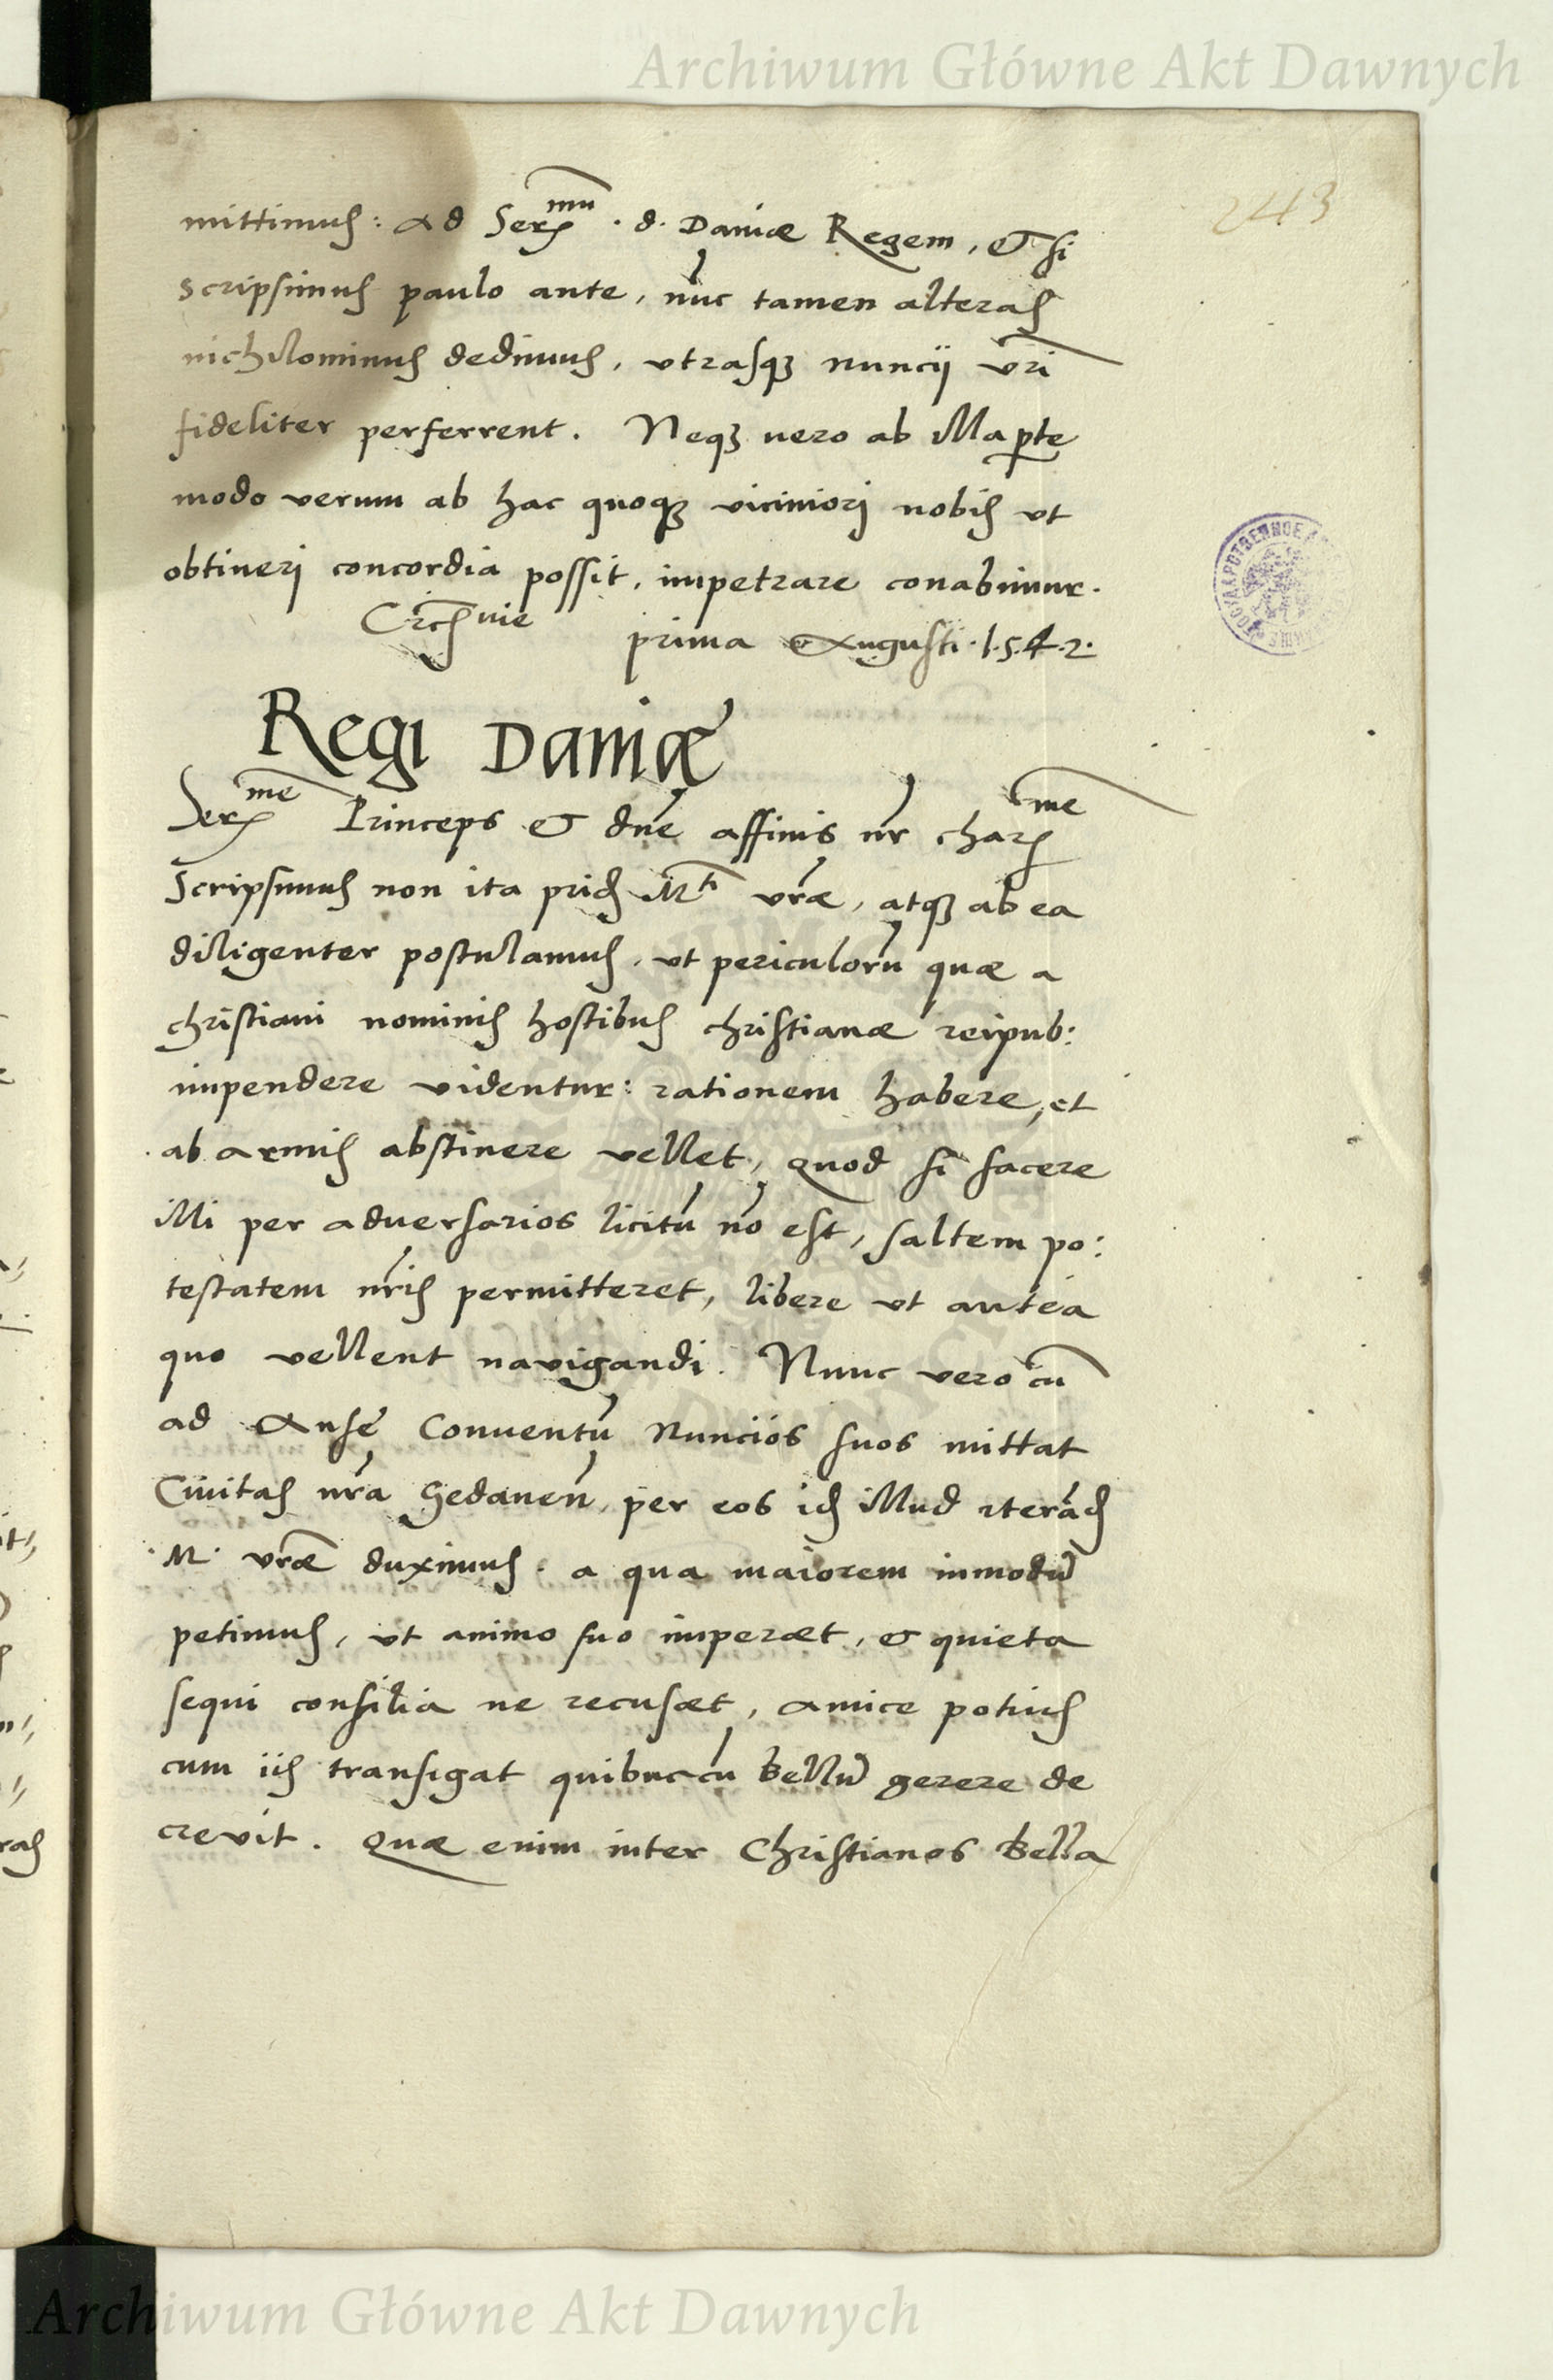 Archiwum Główne Akt Dawnych
243
mittimus: Ad Ser^mu . d. Daniæ Regem, & si
scripsimus paulo ante, nūc tamen alteras
nichilominus dedimus, vtrasqʒ nuncij vr̄i
fideliter perferrent. Neqʒ uero ab illa ꝑte
modo verum ab hac quoqʒ viciniorj nobis vt
obtinerj concordia possit, impetrare conabimur.
prima Augusti . 1.5.4.2.
Regi Daniæ
Ser^me Princeps & dn̄e affinis nr̄ char^me
Scripsimus non ita prid M^ti vr̄æ, atqʒ ab ea
diligenter postulamus, vt periculorū quæ a
christiani nominis hostibus christianæ reipub:
impendere videntur: rationem habere, et
ab armis abstinere vellet, quod si facere
illi per aduersarios licitū nō est, saltem po:
testatem nr̄is permitteret, libere vt antea
quo vellent navigandi. Nunc vero cū
ad Ansē Conuentū nuncios suos mittat
Ciuitas nr̄a Gedanen̄, per eos id illud iterād
M. vr̄æ duximus. a qua maiorem inmodū
petimus, vt animo suo imperæt, & quieta
sequi consilia ne recusæt, amice potius
cum iis transigat quibuscū bellū gerere de
crevit. Quæ enim inter Christianos Bella
Archiwum Główne Akt Dawnych